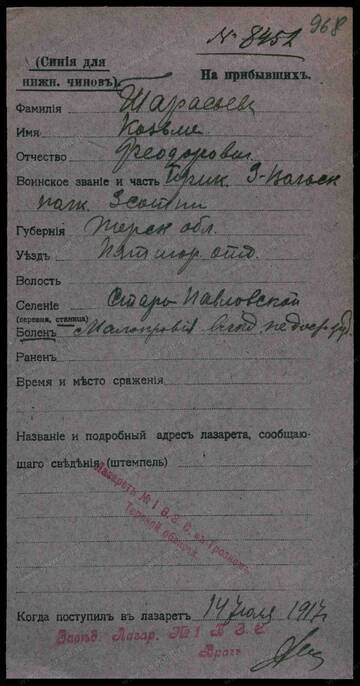 № 8452
968
(Синія для
нижн. чиновъ).
На прибывшихъ.
Фамилія
Имя Козьме
Отчество Феодорович
Воинское званіе и часть Прик. 3-
полк 3 сотни
Губернія Терск обл.
Уѣздъ Пятигор. отд.
Волость
Селеніе Старо-Павловской
(деревня, станица)
Боленъ Малокровіе
Раненъ
Время и мѣсто сраженія
Названіе и подробный адресъ лазарета, сообщаю-
щаго свѣдѣнія (штемпель)
Лазаретъ № 1 В. З. С. въ г. Грозномъ
Терской области.
Когда поступилъ в лазаретъ 14 Іюля 1917 г.
Завѣд. Лазар. № 1 В З С
Врачъ